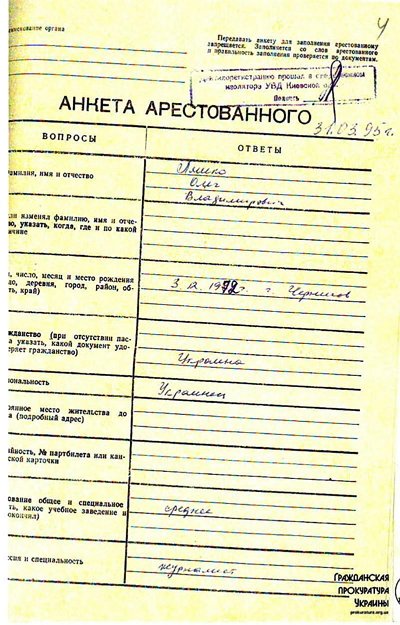 именование органа
4
Передавать анкету для заполнения арестованному
запрещается. Заполняется со слов арестованного
и правильность заполнения проверяется по документам.
прошел в
изолятора УВД Киевской
31.03.95г.
АНКЕТА АРЕСТОВАННОГО
ВОПРОСЫ
ОТВЕТЫ
амилия, имя и отчество
Олег
Владимирович
ли изменял фамилию, имя и отче-
во, указать, когда, где и по какой
ичине
, число, месяц и место рождения
ло, деревня, город, район, об-
ть, край)
г. Чернигов
жданство (при отсутствии пас-
а указать, какой документ удо-
еряет гражданство)
Украина
иональность
Украинец
оянное место жительства до
а (подробный адрес)
ийность, № партбилета или кан-
ской карточки
ование общее и специальное
ть, какое учебное заведение и
окончил)
среднее
сия и специальность
журналист
ГРАЖДАНСКАЯ
ПРОКУРАТУРА
УКРАИНЫ
prokuratura.org.ua